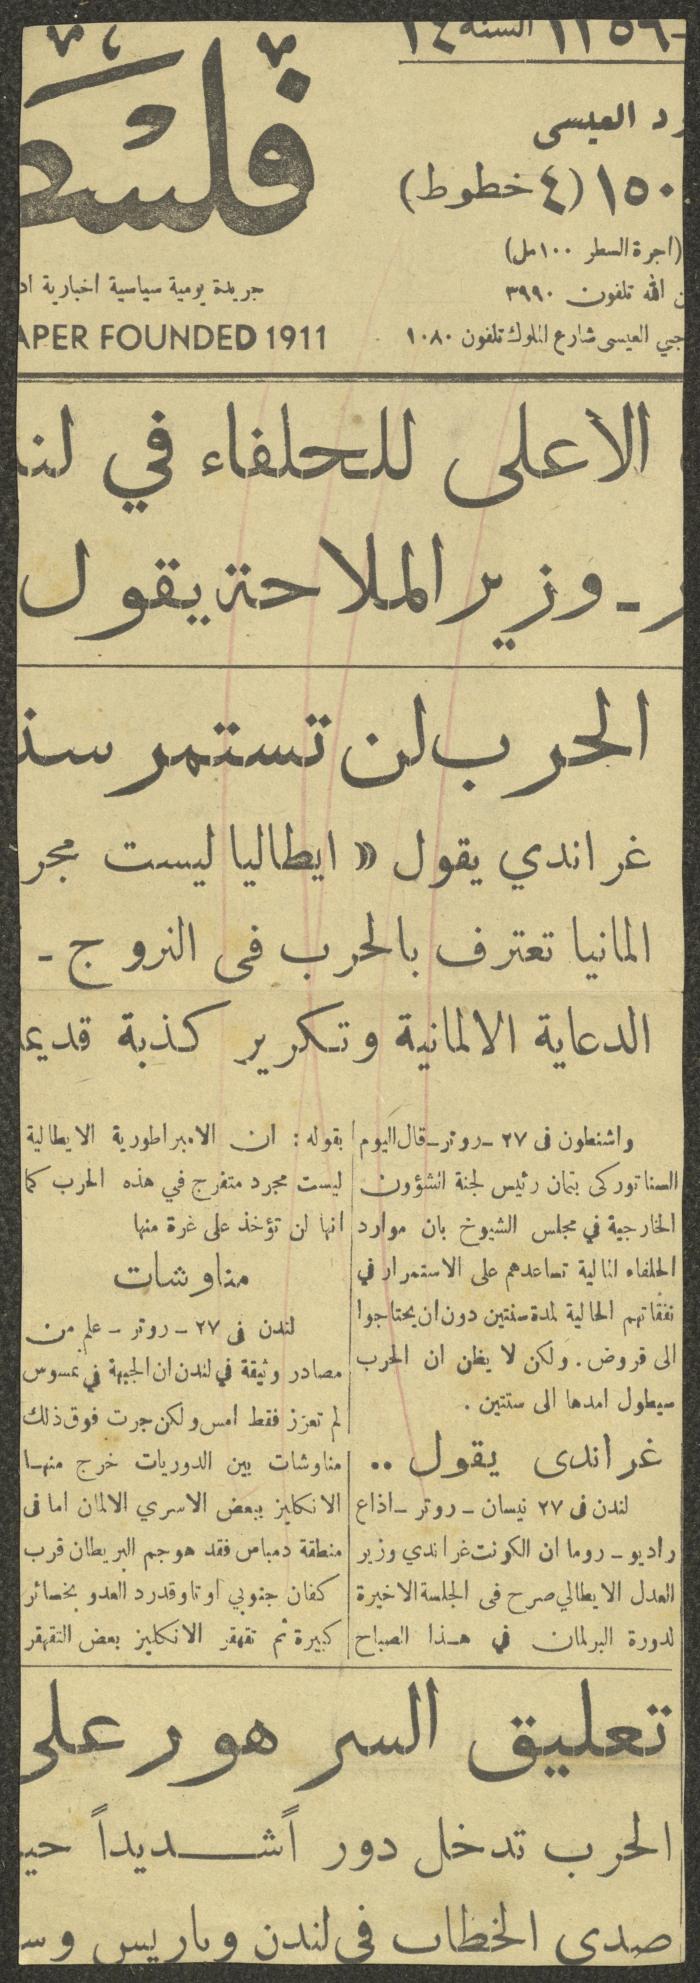 السنة ٢٤
العيسى
١٥٠ (٤ خطوط)
(اجرة السطر ١٠٠ مل)
الله تلفون ٣٩٩٠
العيسى شارع الملوك تلفون ١٠٨٠
جريدة يومية سياسية اخبارية
FOUNDED 1911
الاعلى للحلفاء في
ـ وزير الملاحة يقول
الحرب لن تستمر
غراندي يقول « ايطاليا ليست
المانيا تعترف بالحرب فى النروج ـ
الدعاية الالمانية وتكرير كذبة
واشنطون فى ٢٧ ـ روتر ـ قال اليوم
السناتور كى بتمان رئيس لجنة الشؤون
الخارجية في مجلس الشيوخ بان موارد
الحلفاء المالية تساعدهم على الاستمرار في
نفقاتهم الحالية لمدة سنتين دون ان يحتاجوا
الى قروض . ولكن لا يظن ان الحرب
سيطول امدها الى سنتين .
غراندى يقول ..
لندن فى ٢٧ نيسان ـ روتر ـ اذاع
راديو ـ روما ان الكونت غراندي وزير
العدل الايطالي صرح فى الجلسة الاخيرة
لدورة البرلمان في هـذا الصباح
بقوله : ان الامبراطورية الايطالية
ليست مجرد متفرج في هذه الحرب كما
انها لن تؤخذ على غرة منها
مناوشات
لندن فى ٢٧ ـ روتر ـ علم من
مصادر وثيقة في لندن ان الجبهة في نمسوس
لم تعزز فقط امس ولكن جرت فوق ذلك
مناوشات بين الدوريات خرج منهـا
الانكليز ببعض الاسرى الالمان اما فى
منطقة دمباس فقد هوجم البريطان قرب
كفان جنوبي اوتا وقد رد العدو بخسائر
كبيرة ثم تقهقر الانكليز بعض التقهقر
تعليق السر هور على
الحرب تدخل دوراً شـديداً
صدى الخطاب فى لندن وباريس